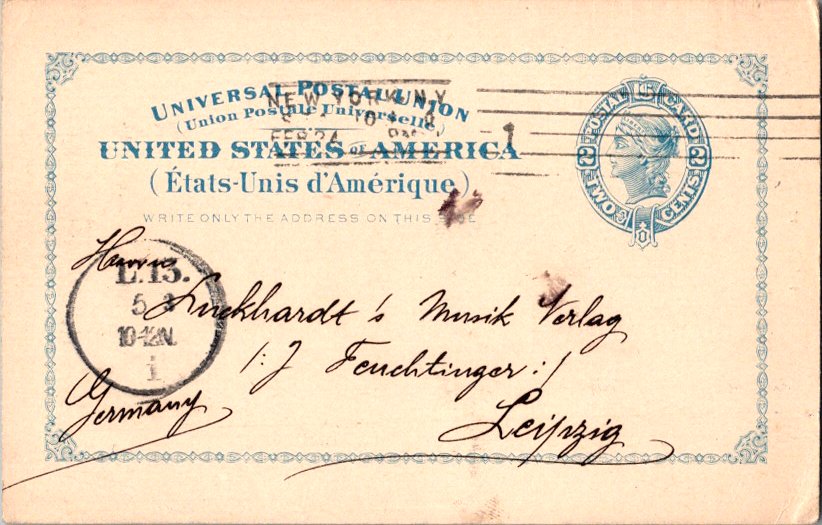 UNIVERSAL POSTAL UNION
(Union Postale Universelle)
UNITED STATES OF AMERICA
(États-Unis d'Amérique)
WRITE ONLY THE ADDRESS ON THIS SIDE
POSTAL CARD
2 TWO CENTS 2
NEW YORK, N.Y.
FEB 24
1
L. 13.
5 3
10-12N.
i
Herrn
Luckhardt's Musik Verlag
/: J Feuchtinger :/
Leipzig
Germany